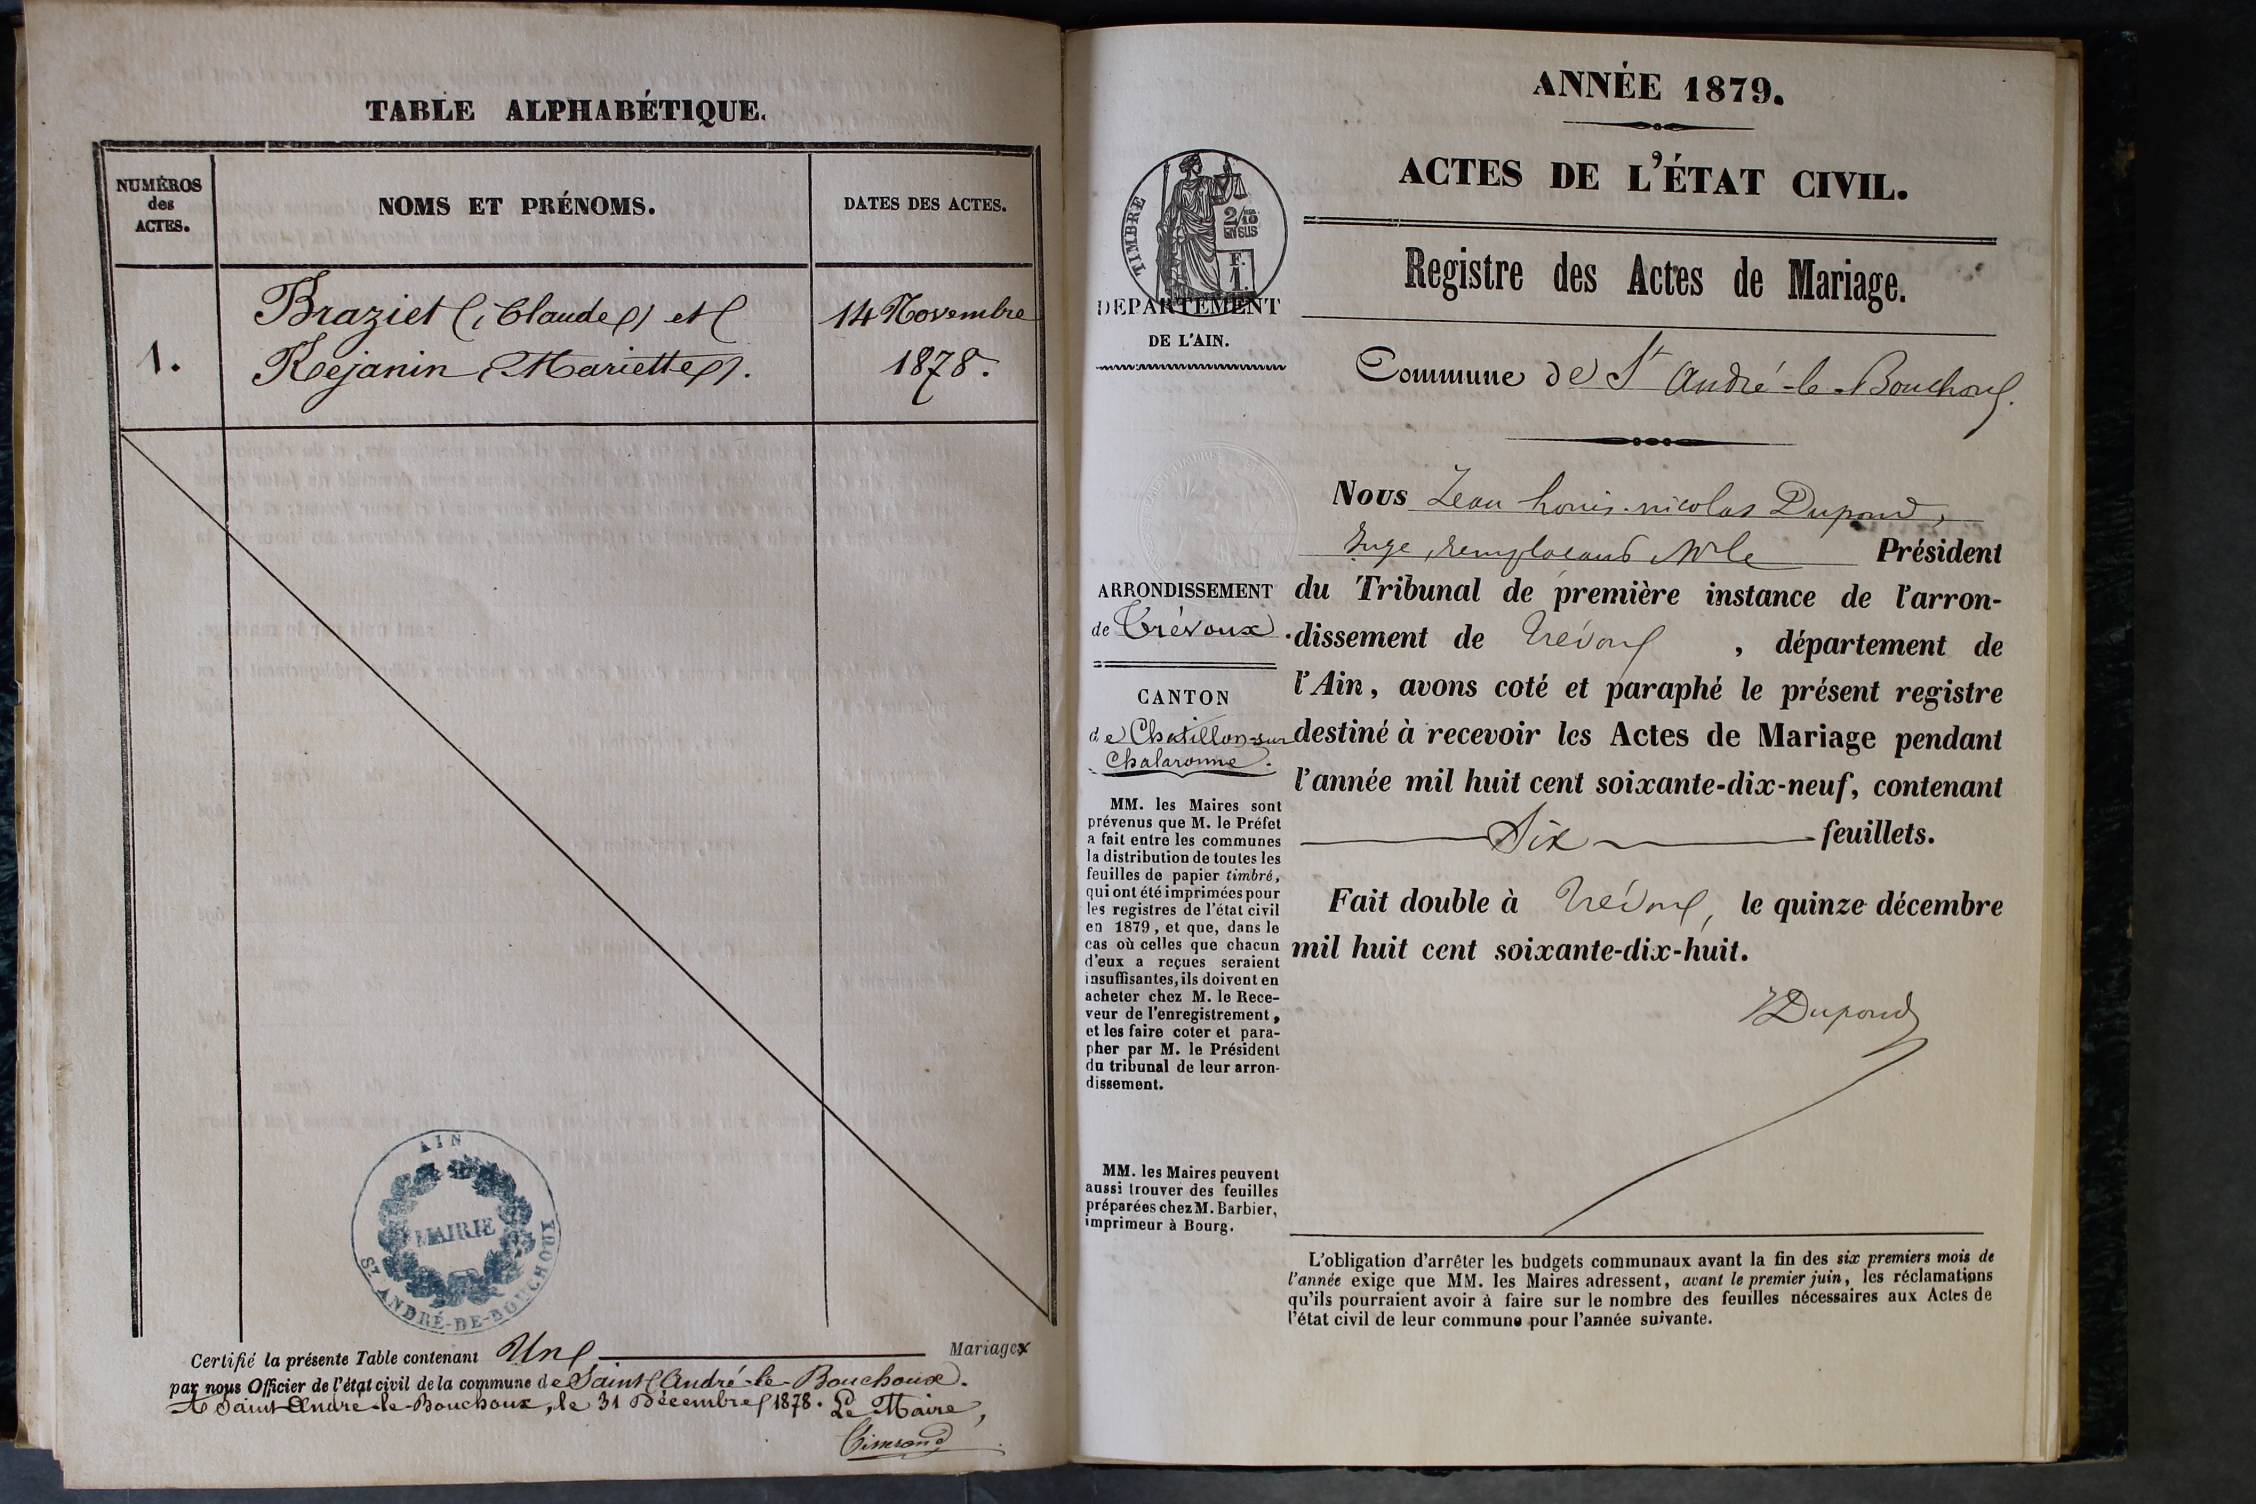 TABLE ALPHABÉTIQUE.
NUMÉROS
des
ACTES.
NOMS ET PRÉNOMS.
DATES DES ACTES.
1.
Braziet (Claude) et
Rejanin (Mariette).
14 Novembre
1878.
AIN
MAIRIE
ST ANDRÉ-DE-BOUCHOUX
Certifié la présente Table contenant Un Mariage
par nous Officier de l'état civil de la commune de Saint André-le-Bouchoux.
A Saint-André-le-Bouchoux, le 31 Décembre 1878. Le Maire,
ANNÉE 1879.
ACTES DE L'ÉTAT CIVIL.
Registre des Actes de Mariage.
Commune de St André-le-Bouchoux.
TIMBRE
2/10
EN SUS
F.
1.
DÉPARTEMENT
DE L'AIN.
ARRONDISSEMENT
de Trévoux.
CANTON
de Chatillon-sur
Chalaronne.
MM. les Maires sont
prévenus que M. le Préfet
a fait entre les communes
la distribution de toutes les
feuilles de papier timbré,
qui ont été imprimées pour
les registres de l'état civil
en 1879, et que, dans le
cas où celles que chacun
d'eux a reçues seraient
insuffisantes, ils doivent en
acheter chez M. le Rece-
veur de l'enregistrement,
et les faire coter et para-
pher par M. le Président
du tribunal de leur arron-
dissement.
MM. les Maires peuvent
aussi trouver des feuilles
préparées chez M. Barbier,
imprimeur à Bourg.
Nous Jean Louis-nicolas Dupond,
Juge, remplacant Mr le Président
du Tribunal de première instance de l'arron-
dissement de Trévoux, département de
l'Ain, avons coté et paraphé le présent registre
destiné à recevoir les Actes de Mariage pendant
l'année mil huit cent soixante-dix-neuf, contenant
Six feuillets.
Fait double à Trévoux, le quinze décembre
mil huit cent soixante-dix-huit.
Dupond
L'obligation d'arrêter les budgets communaux avant la fin des six premiers mois de
l'année exige que MM. les Maires adressent, avant le premier juin, les réclamations
qu'ils pourraient avoir à faire sur le nombre des feuilles nécessaires aux Actes de
l'état civil de leur commune pour l'année suivante.